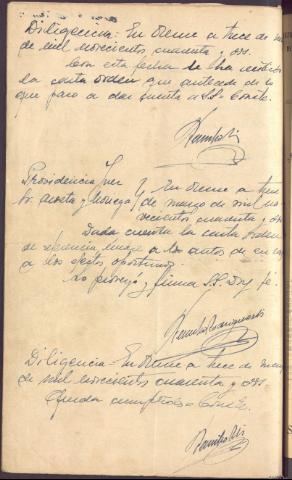 Diligencia: En Orense a trece de
de mil novecientos cuarenta y dos.
Con esta fecha se ha recibido
la carta orden que antecede de lo
que paso a dar cuenta a SSª. Conste.
Providencia Juez En Orense a trece
Sr. Acosta y Noriega de marzo de mil no-
vecientos cuarenta y dos
Dada cuenta la carta orden
de referencia únase a los autos de
a los efectos oportunos.
Lo proveyó y firma S.S. Doy fé.
Diligencia.- En Orense a trece de
de mil novecientos cuarenta y dos.
Queda cumplido. Conste.